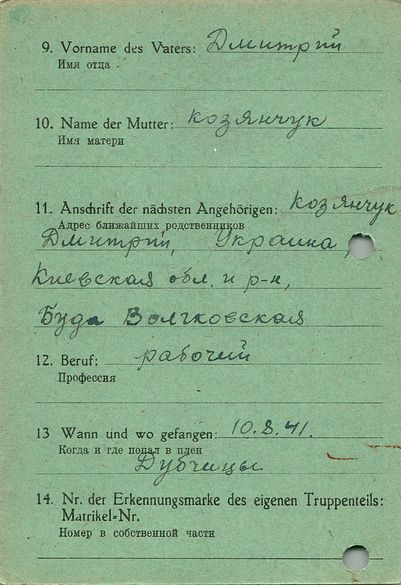 9. Vorname des Vaters: Дмитрий
Имя отца
10. Name der Mutter: Козянчук
Имя матери
11. Anschrift der nächsten Angehörigen: Козянчук
Адрес ближайших родственников
Дмитрий, Украина,
Киевская обл. и р-н,
Буда Волчковская
12. Beruf: рабочий
Профессия
13 Wann und wo gefangen: 10.8.41.
Когда и где попал в плен
Дубчицы
14. Nr. der Erkennungsmarke des eigenen Truppenteils:
Matrikel-Nr.
Номер в собственной части